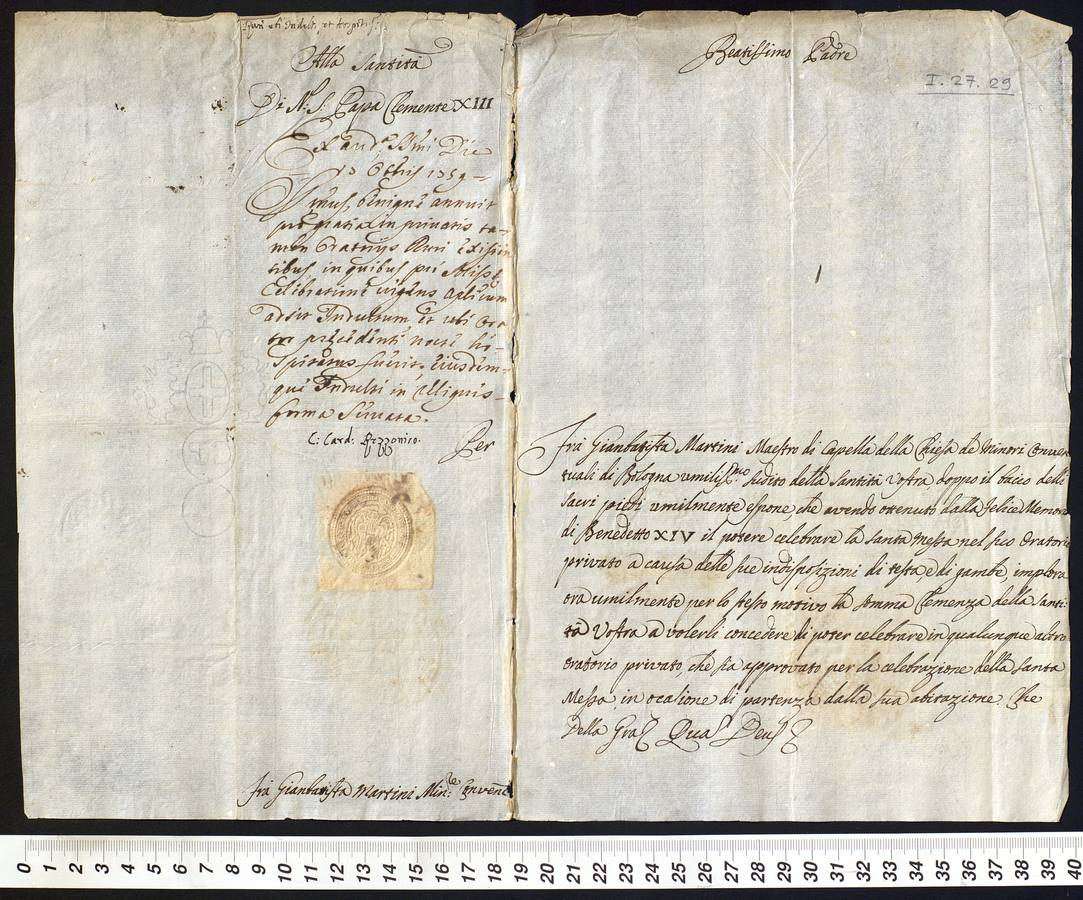 Alla Santità
Di N. S. Papa Clemente XIII
Ex aud.ª SSmi Die
13 8bris 1759
SSmus benignè annuit
pro gratia in privatis ta-
men Oratorijs Ruri existen
tibus, in quibus pro Missæ
Celebratione vigens Aplicum
adsit Indultum et ubi Ora
tor præcedenti nocte ho-
spitatus fuerit, eiusdem-
que Indulti in reliquis
forma servata.
C: Card: Rezzonico.
Per
Frà Gianbatista Martini Min:re Conven:
Beatissimo Padre
I. 27. 29
Frà Gianbatista Martini Maestro di Capella della Chiesa de Minori Conven
tuali di Bologna umiliss:mo sudito della Santità Vostra, doppo il bacio delli
Sacri piedi umilmente espone, che avendo ottenuto dalla felice Memoria
di Benedetto XIV il potere celebrare la Santa Messa nel suo Oratorio
privato a causa delle sue indisposizioni di testa, e di gambe, implora
ora umilmente per lo stesso motivo la somma Clemenza della Santi:
tà Vostra a volerli concedere di poter celebrare in qualunque altro
Oratorio privato, che sia approvato per la celebrazione della Santa
Messa in ocasione di partenza dalla sua abitazione. Che
della Gra Quas Deus